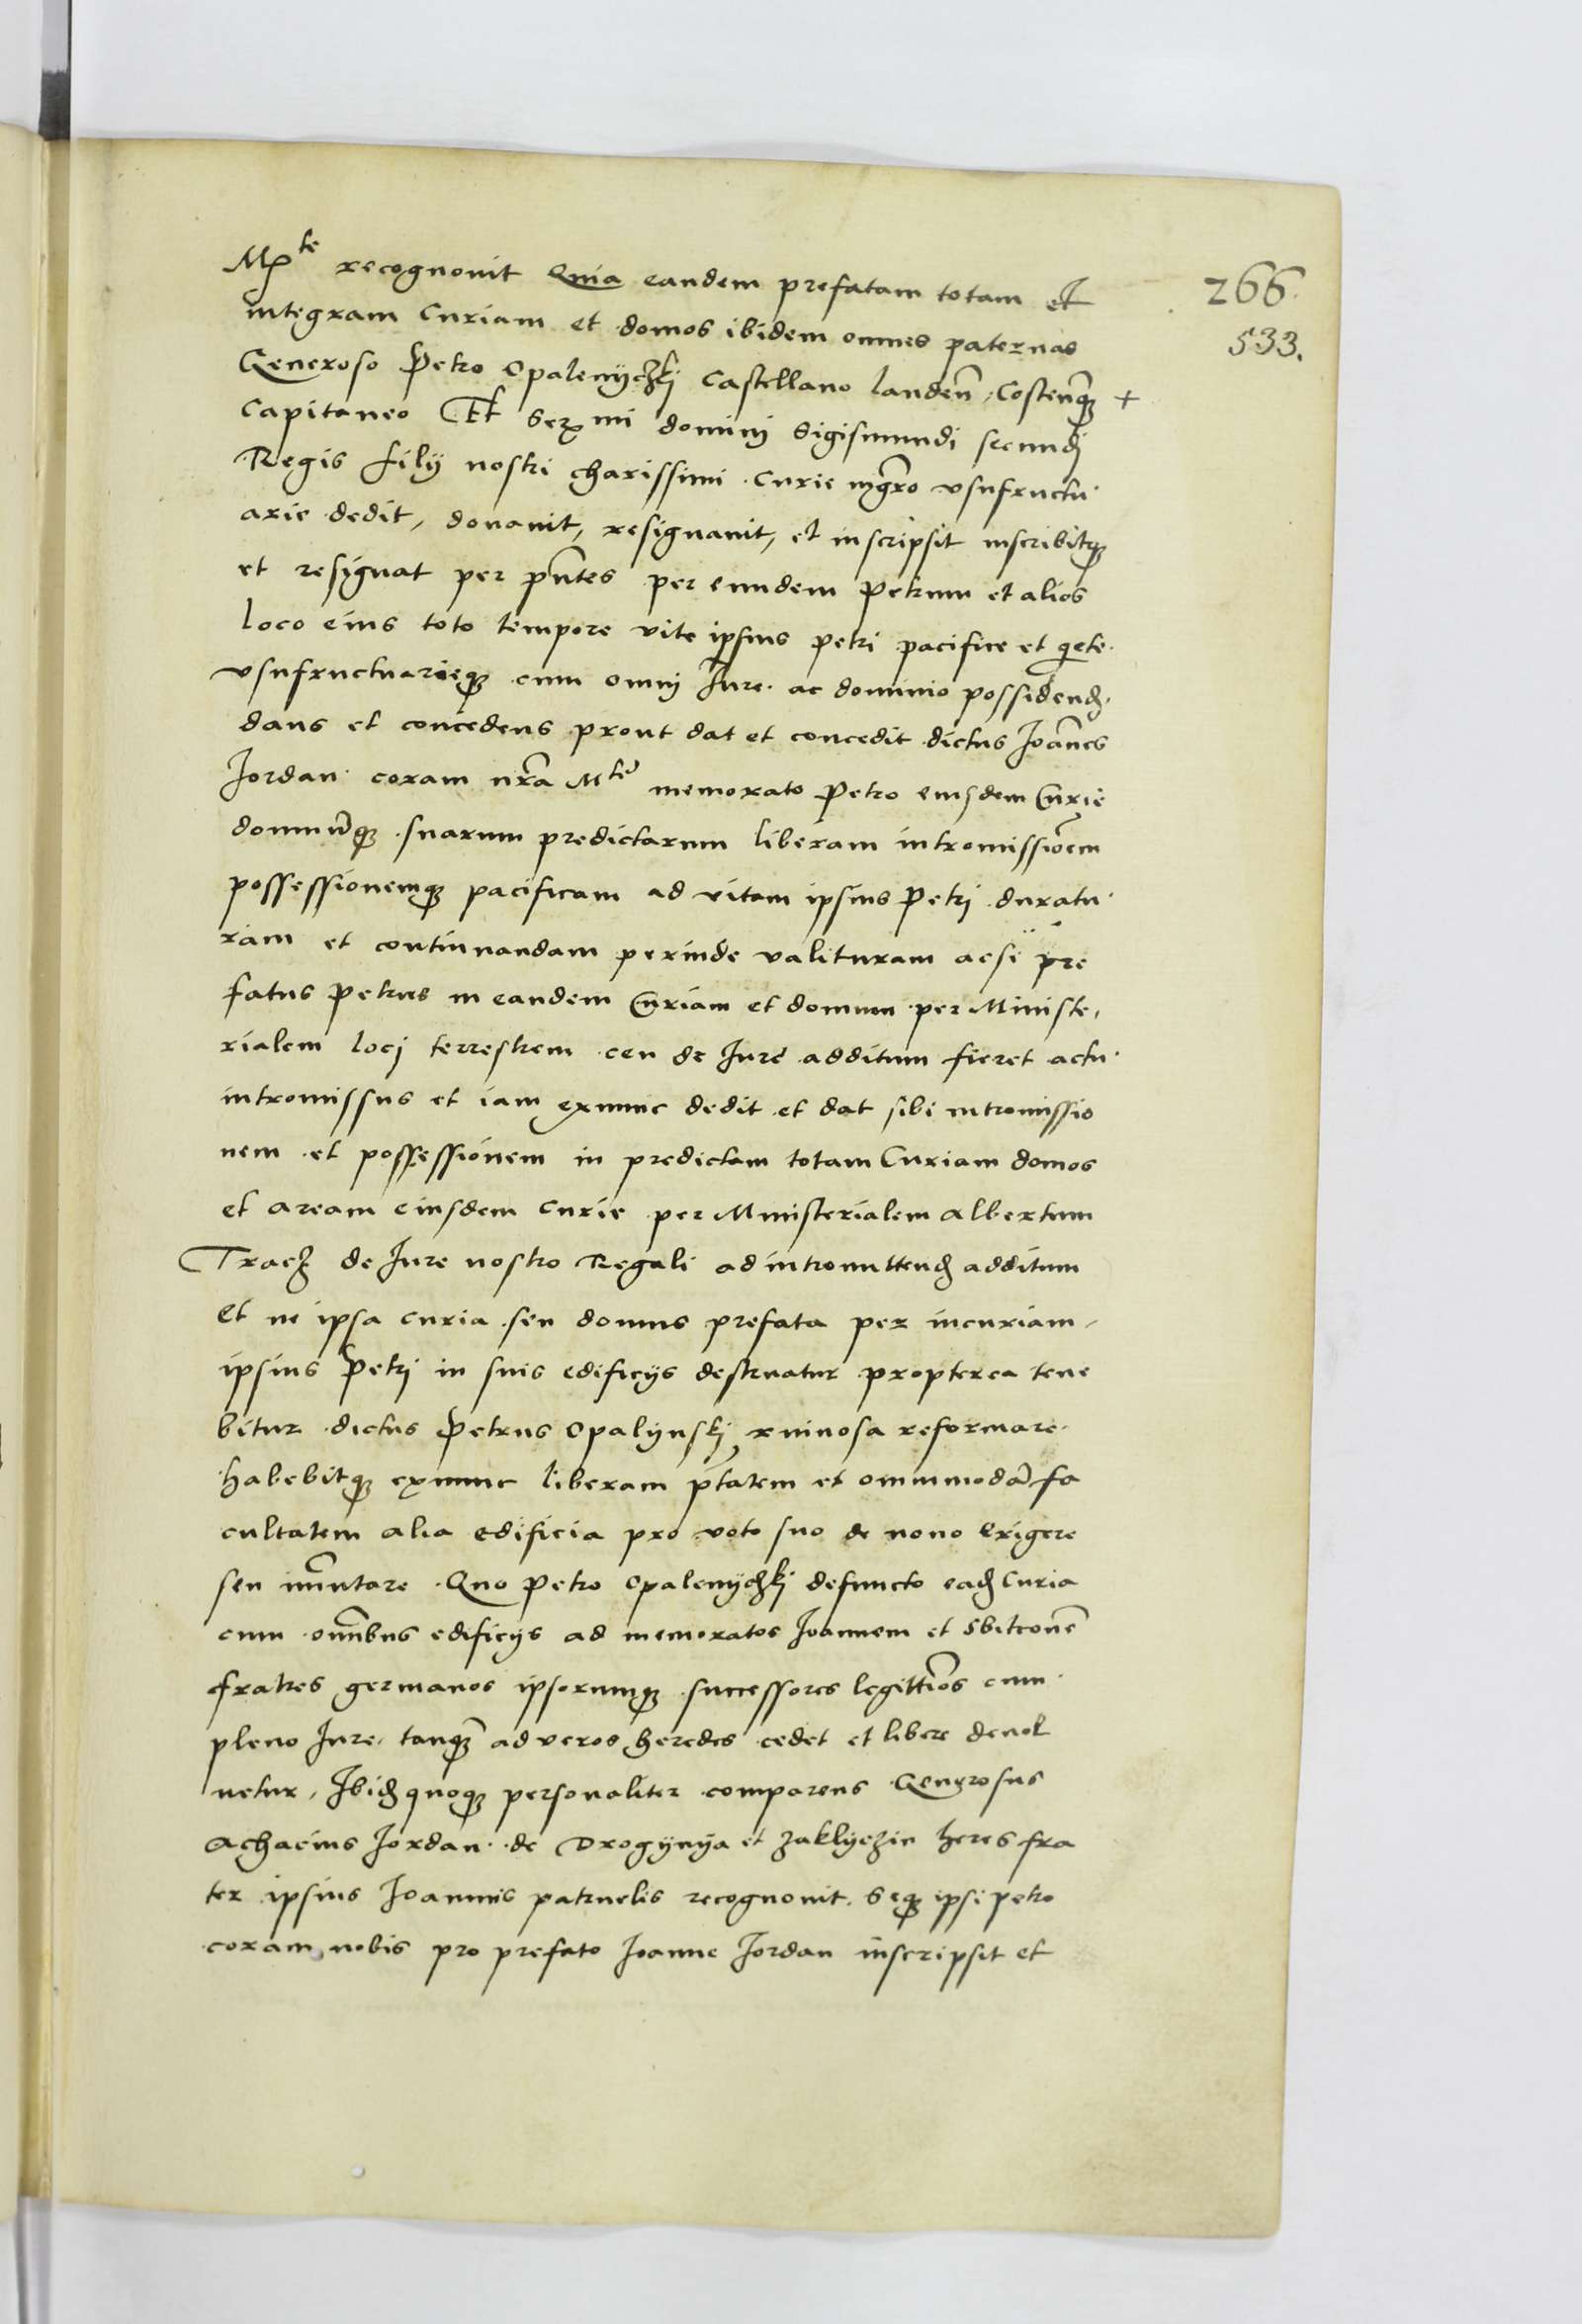 M^te recognovit Quia eandem prefatam totam et
266.
integram Curiam et domos ibidem omnes paternas
533.
Generoso Petro Opalenyczkj Castellano landeñ, Costeñq3 +
Capitaneo Et Ser^mi dominj Sigismundi secundj
Regis filij nostri charissimi Curie mgr̃o vsufructu
arie dedit, donauit, resignauit, et inscripsit inscribitq3
et resignat per pñtes per eundem Petrum et alios
loco eius toto tempore vite ipsius Petri pacifice et qete
vsufructuarieq3 cum omnj Jure ac dominio possidend
dans et concedens prout dat et concedit dictus Joañes
Jordan coram nr̃a M^te memorato Petro eiusdem Curie
domuũq3 suarum predictarum liberam intromissiõem
possessionemq3 pacificam ad vitam ipsius Petrj duratu
ram et continuandam perinde valituram acsi pre
fatus Petrus in eandem Curiam et domum per Ministe,
rialem locj terrestrem ceu de Jure additum fieret actu
intromissus et iam exnunc dedit et dat sibi intromissio
nem et possessionem in predictam totam Curiam domos
et aream eiusdem Curie per Ministerialem Albertum
Tracz de Jure nostro Regali ad intromittend additum
Et ne ipsa curia seu domus prefata per incuriam,
ipsius Petrj in suis edificijs destruatur propterea tene
bitur dictus Petrus Opalynskj ruinosa reformare
habebitq3 exnunc liberam ptatem et omnimodã fa
cultatem alia edificia pro voto suo de nouo erigere
seu im̃utare. Quo Petro Opalenyczkj defuncto ead Curia
cum om̃ibus edificijs ad memoratos Joannem et Sbitconẽ
fratres germanos ipsorumq3 successores legittĩos cum
pleno Jure, tanq3 ad veros heredes cedet et libere deuol
uetur, Ibid quoq3 personaliter comparens Generosus
Achacius Jordan de Drogynya et Zaklyczin heres fra
ter ipsius Joannis patruelis recognouit. Seq3 ipsi petro
coram nobis pro prefato Joanne Jordan inscripsit et